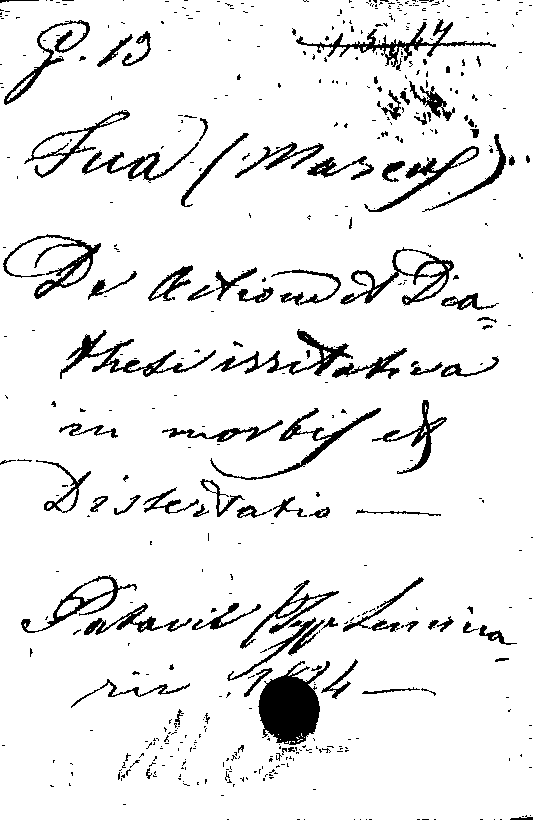 P. 13
Fua (Marcus)
De Actione et Dia-
thesi irritativa
in morbis etc
Dissertatio —
Patavii Typ Seminia-
rii 1824 —